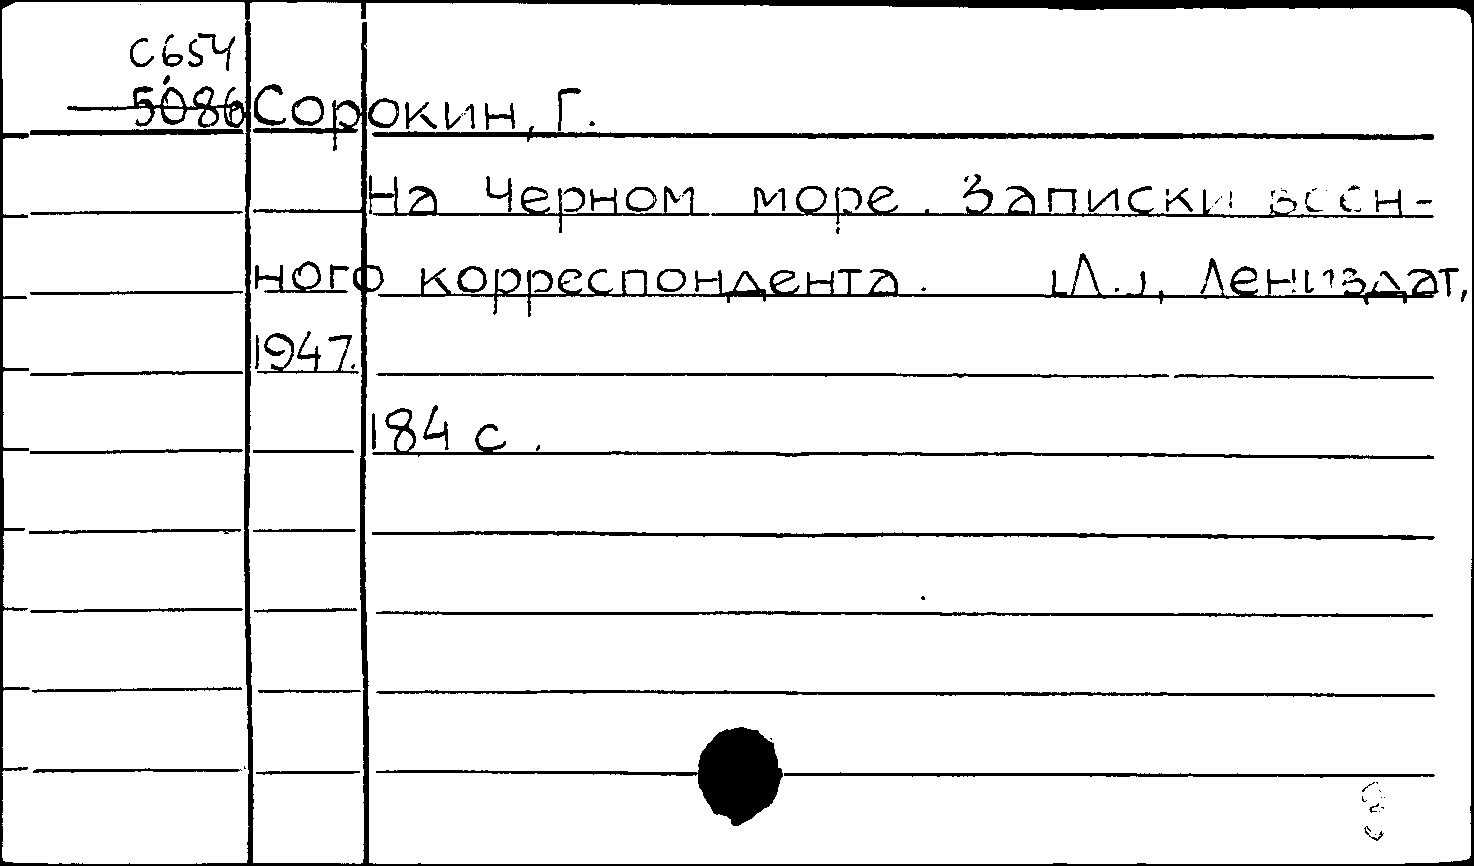 С654
5086 Сорокин, Г.
На Черном море. Записки воен-
ного корреспондента. [Л.], Лениздат,
1947.
184 с.